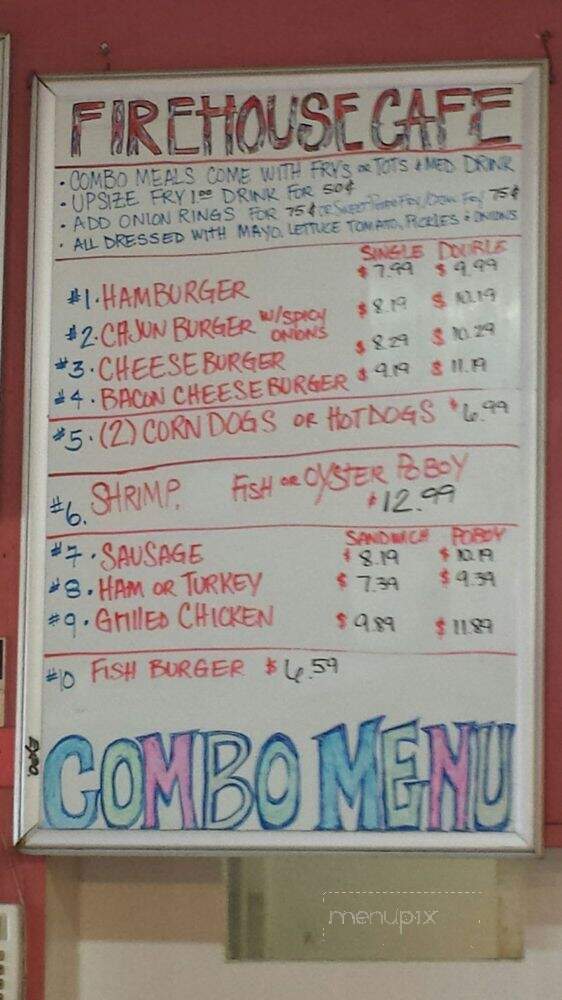 FIREHOUSE CAFE
• COMBO MEALS COME WITH FRYS OR TOTS & MED DRINK
• UPSIZE FRY 1.00 DRINK FOR 50¢
• ADD ONION RINGS FOR 75¢ OR SWEET POTATO FRY/ FRY 75¢
• ALL DRESSED WITH MAYO, LETTUCE TOMATO, PICKLES & ONIONS
SINGLE DOUBLE
#1. HAMBURGER $7.99 $9.99
#2. CAJUN BURGER W/SPICY ONIONS $8.19 $10.19
#3. CHEESEBURGER $8.29 $10.29
#4. BACON CHEESEBURGER $9.19 $11.19
#5. (2) CORN DOGS OR HOT DOGS $6.99
#6. SHRIMP, FISH OR OYSTER POBOY
$12.99
SANDWICH POBOY
#7. SAUSAGE $8.19 $10.19
#8. HAM OR TURKEY $7.39 $9.39
#9. GRILLED CHICKEN $9.89 $11.89
#10 FISH BURGER $6.59
COMBO MENU
menupix